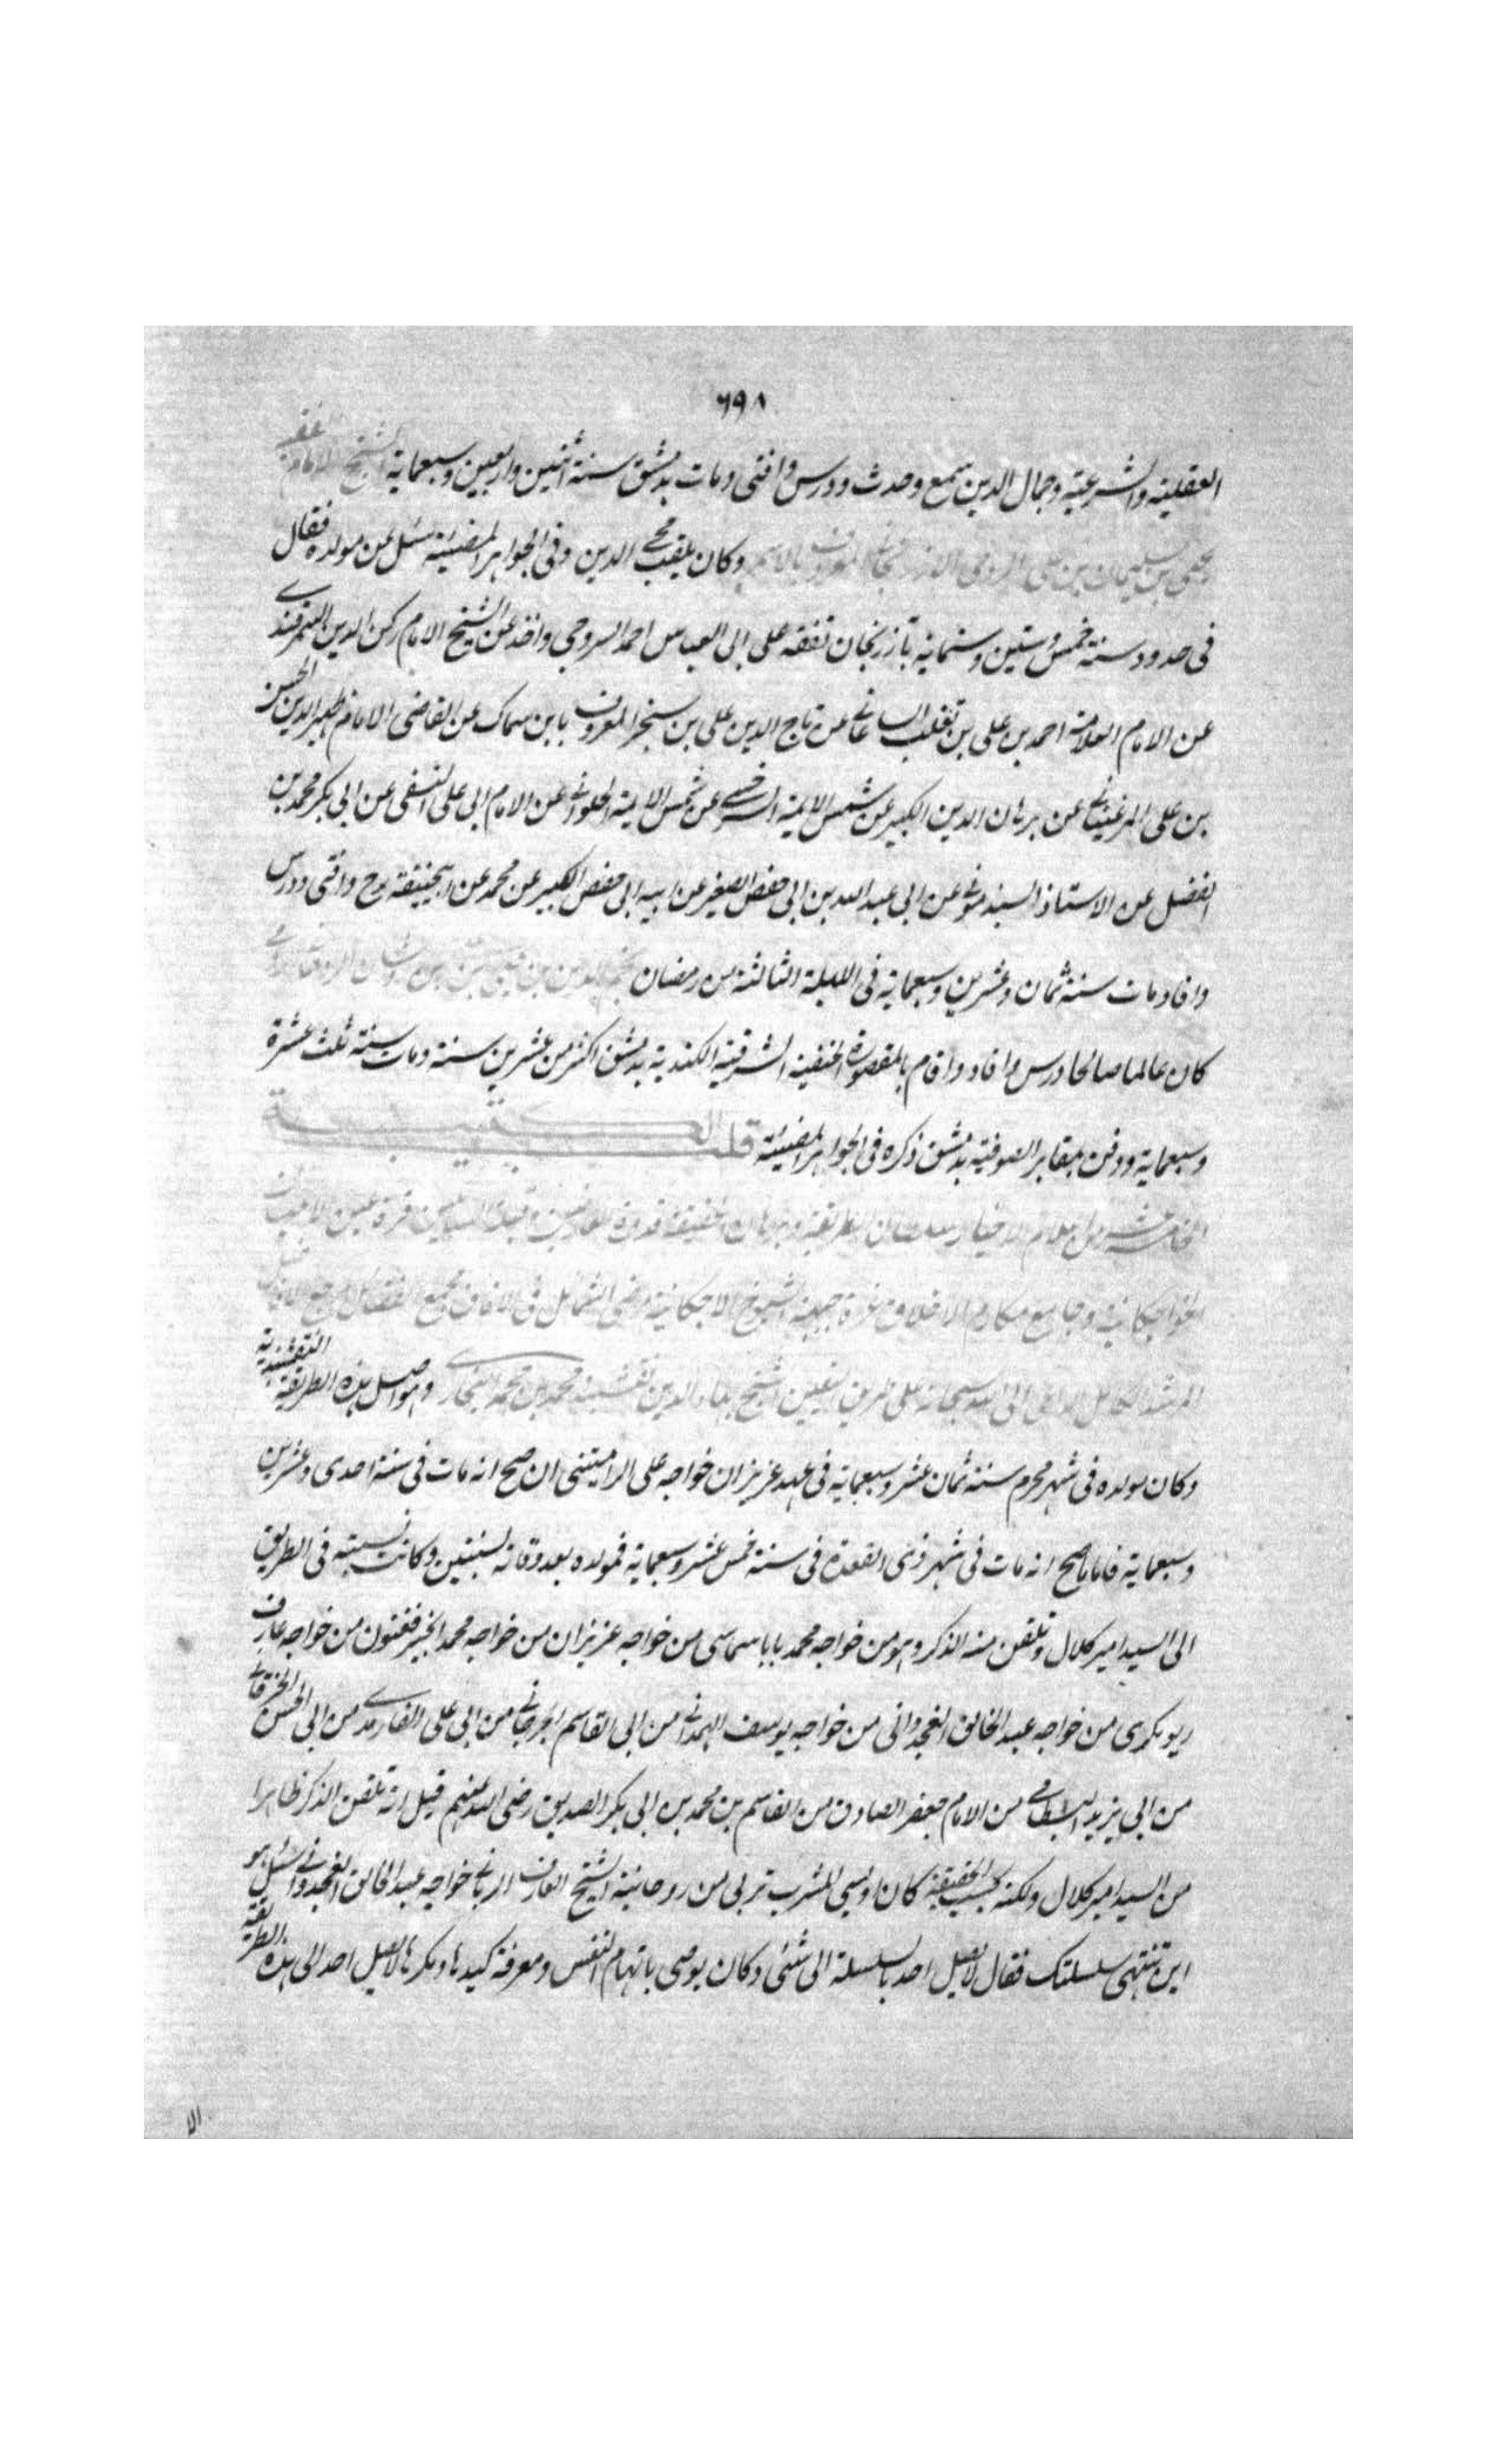 ٦٩٨
العقلية والشرعية وجمال الدين سمع وحدث ودرس وافتى ومات بدمشق سنة اثنين واربعين وسبعماية الشيخ الامام
يحيى بن سليمان بن على الرومى الازرنجانى المعروف بالاسمر وكان يلقب محى الدين وفى الجواهر المضيئة سئل عن مولده فقال
فى حدود سنة خمس وستين وستماية بآزرنجان تفقه على ابى العباس احمد السروجى واخذ عن الشيخ الامام ركن الدين السمرقندى
عن الامام العلامة احمد بن على بن تغلب الساعاتى عن تاج الدين على بن سنجر المعروف بابن سماك عن القاضى الامام ظهير الدين الحسن
بن على المرغينانى عن برهان الدين الكبير عن شمس الايمة السرخسى عن شمس الايمة الحلوانى عن الامام ابى على النسفى عن ابى بكر محمد بن
الفضل عن الاستاذ السبذمونى عن ابى عبد الله بن ابى حفص الصغير عن ابيه ابى حفص الكبير عن محمد عن ابيحنيفة رح وافتى ودرس
وافاد ومات سنة ثمان وعشرين وسبعماية فى الليلة الثالثة من رمضان
كان عالما صالحا درس وافاد واقام بالمقصورة الحنفية الشرقية الكندية بدمشق اكثر من عشرين سنة ومات سنة ثلث عشرة
وسبعماية ودفن بمقابر الصوفية بدمشق ذكره فى الجواهر المضيئة قلب الكتيبة
الاخيار سلطان الطريقة وبرهان الحقيقة قدوة العارفين وقبلة السالكين قرة عين
الخواجكانية وجامع مكارم الاخلاق غرة جبهة الشيوخ الاجكانية مرضى الشمائل فى الافاق ومجمع الفضائل
المرشد الكامل الداعى الى الله سبحانه على طريق اليقين الشيخ بهاء الدين نقشبند محمد بن محمد البخارى وهو اصل هذه الطريقة النقشبندية
وكان مولده فى شهر محرم سنة ثمان عشر وسبعماية فى عهد عزيزان خواجه على الراميتنى ان صح انه مات فى سنة احدى وعشرين
وسبعماية فاما ما صح انه مات فى شهر ذى القعدة فى سنة خمس عشر وسبعماية فمولده بعد وفاته بسنتين وكانت نسبته فى الطريق
الى السيد امير كلال وتلقن منه الذكر وهو من خواجه محمد بابا سماسى من خواجه عزيزان من خواجه محمد الخير فغنون من خواجه عارف
ريوكرى من خواجه عبد الخالق الغجدوانى من خواجه يوسف الهمدانى من ابى القاسم الجرجانى من ابى على الفارمدى من ابى الحسن الخرقانى
من ابى يزيد البسطامى من الامام جعفر الصادق من القاسم بن محمد بن ابى بكر الصديق رضى الله عنهم قيل انه تلقن الذكر ظاهرا
من السيد امير كلال ولكنه بحسب الحقيقة كان اويسى المشرب تربى من روحانية الشيخ العارف الربانى خواجه عبد الخالق الغجدوانى سئل هو
اين تنتهى سلسلتك فقال لا يصل احد بالسلسلة الى شئ وكان يوصى باتهام النفس ومعرفة كيدها ومكرها لا يصل احد الى هذه الطريقة
الا